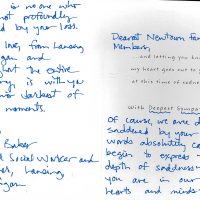 is no one who
not profoundly
by your loss.
love, from Lansing,
gan and
out the entire
ry is with you
our darkest of
moments.
Baker
Social Worker and
Lansing,
gan
Dearest Newtown fam
Members,
...and letting you know
my heart goes out to y
at this time of sadness
With Deepest Sympat
Of course, we are d
saddened by your
words absolutely ca
begin to express
depth of sadness
you are in our
hearts and minds